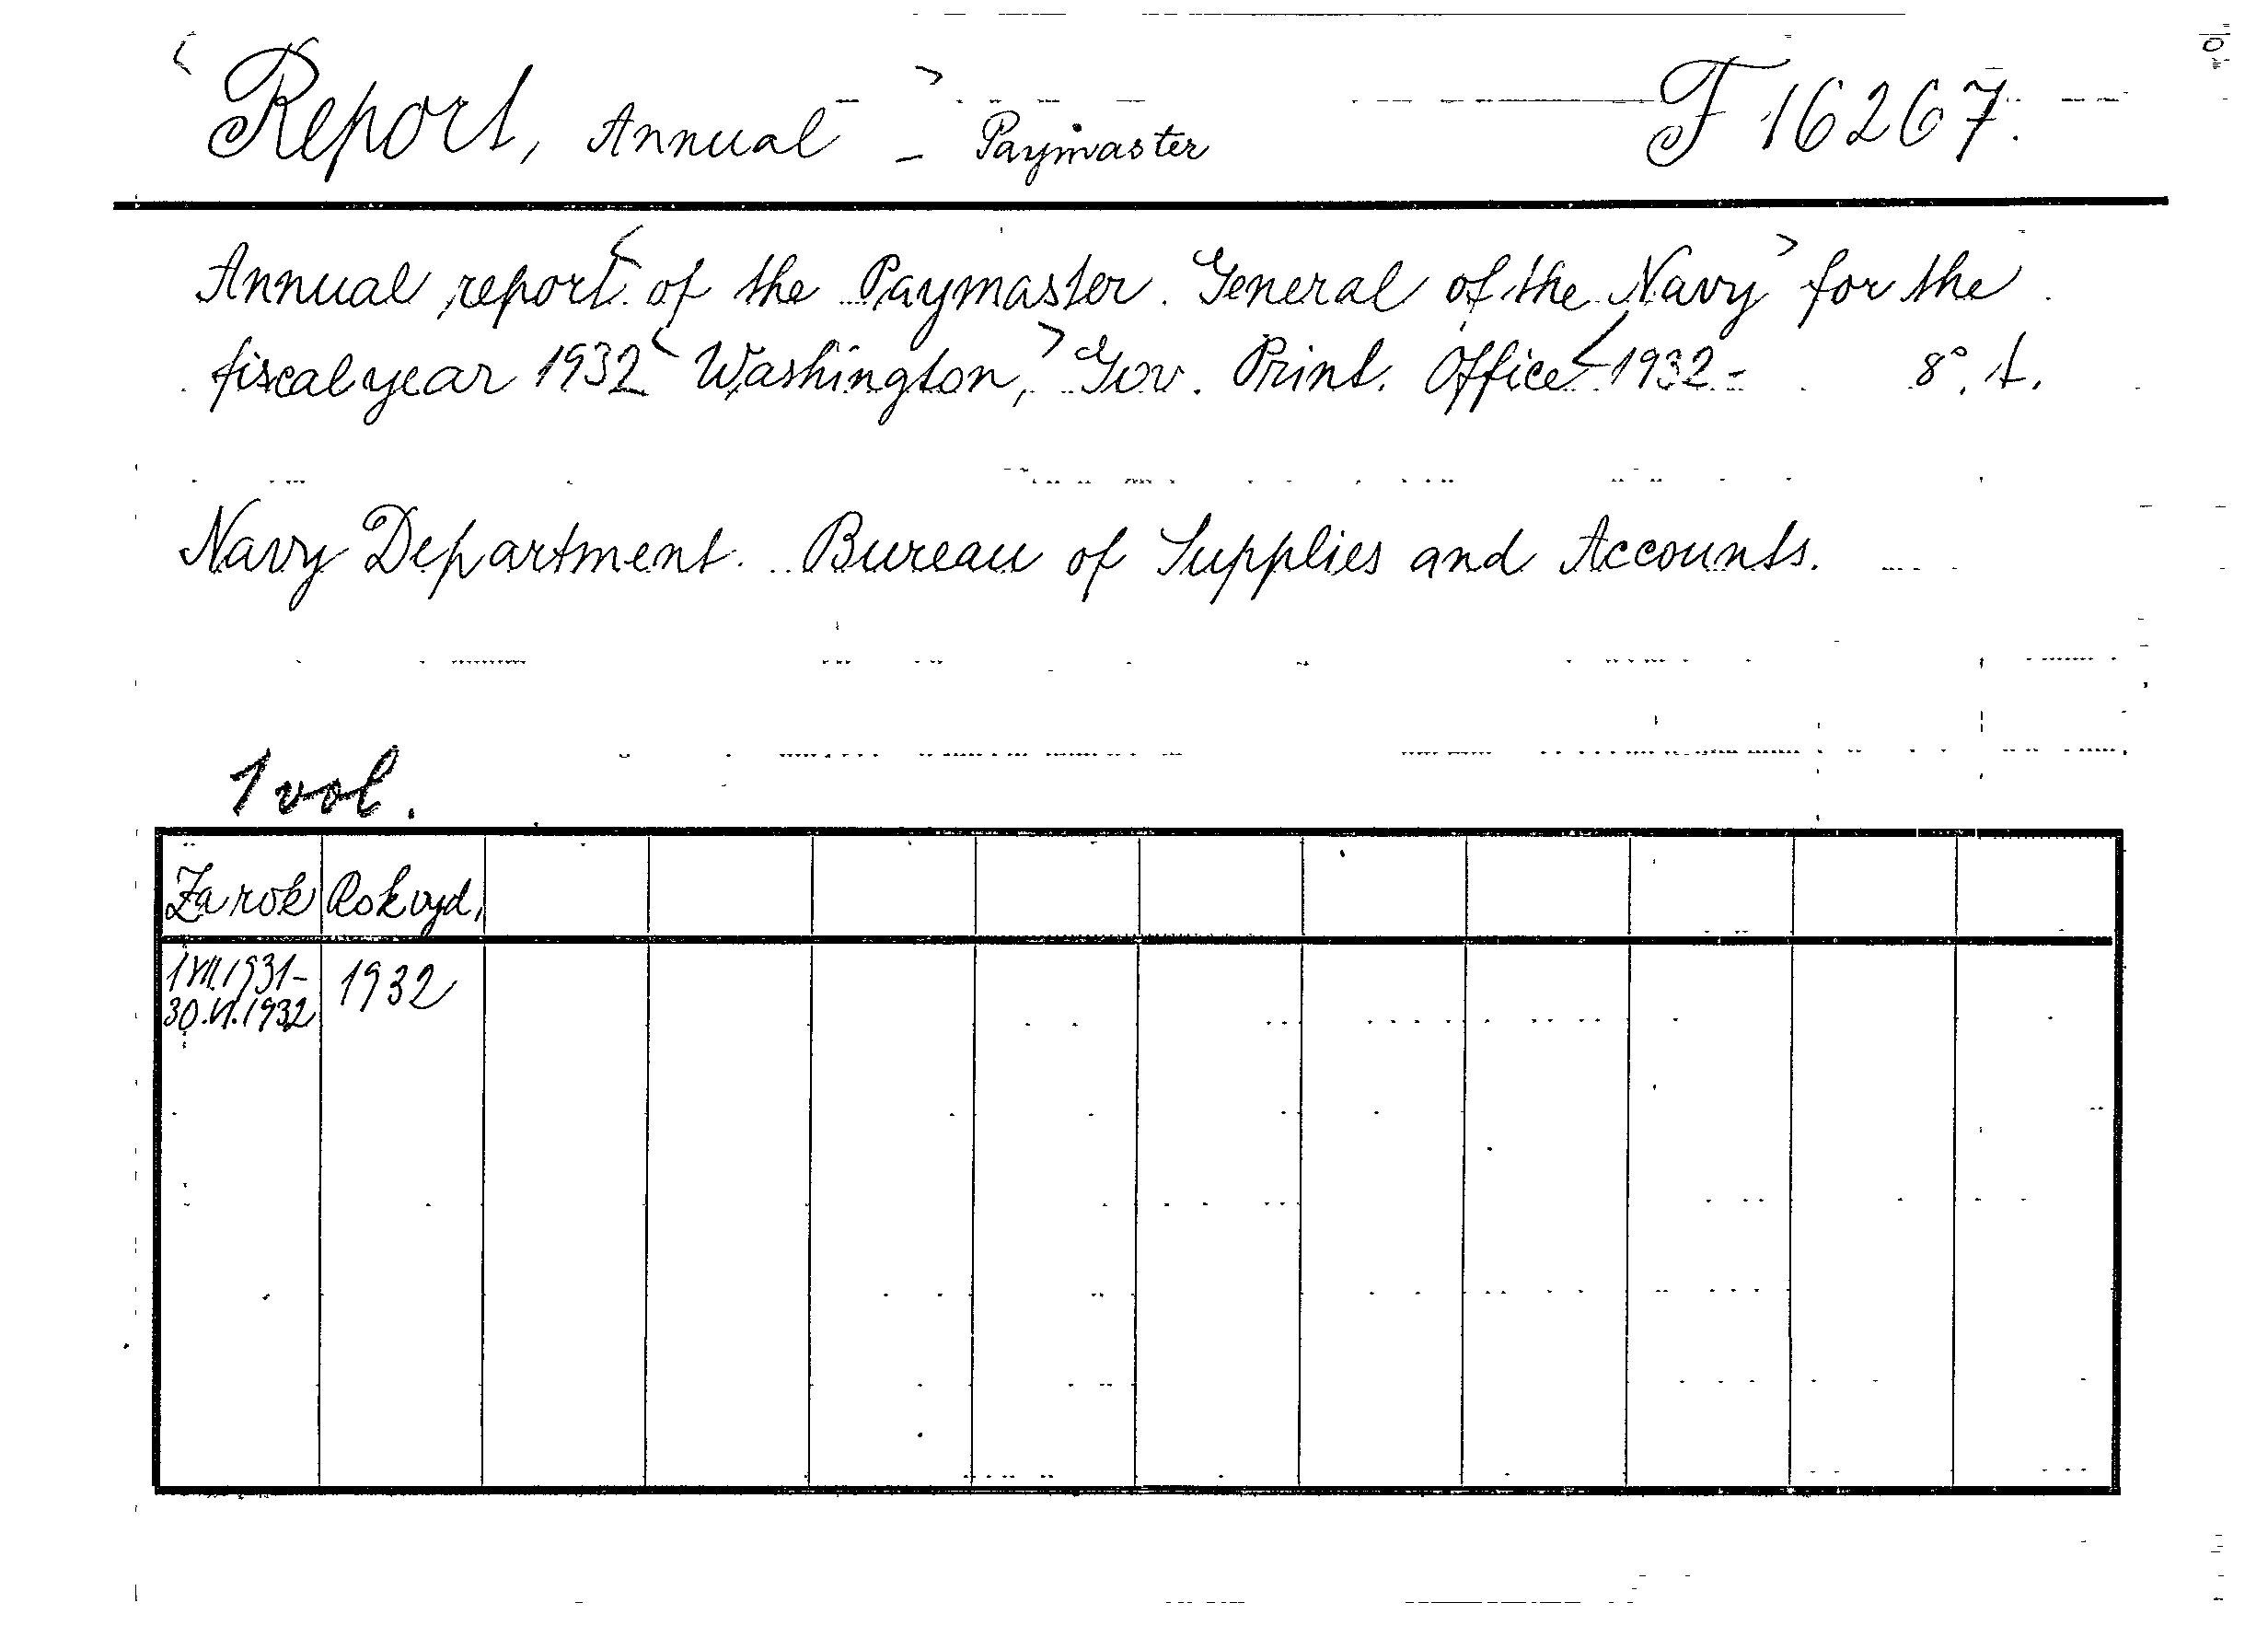 <Report, Annual> - Paymaster F 16267.
Annual report< of the Paymaster General of the Navy> for the
fiscal year 1932< Washington,> Gov. Print. Office< 1932- 8°. t.
Navy Department. Bureau of Supplies and Accounts.
1 vol.
Za rok Rok vyd.
1.VII.1931- 1932
30.VI.1932